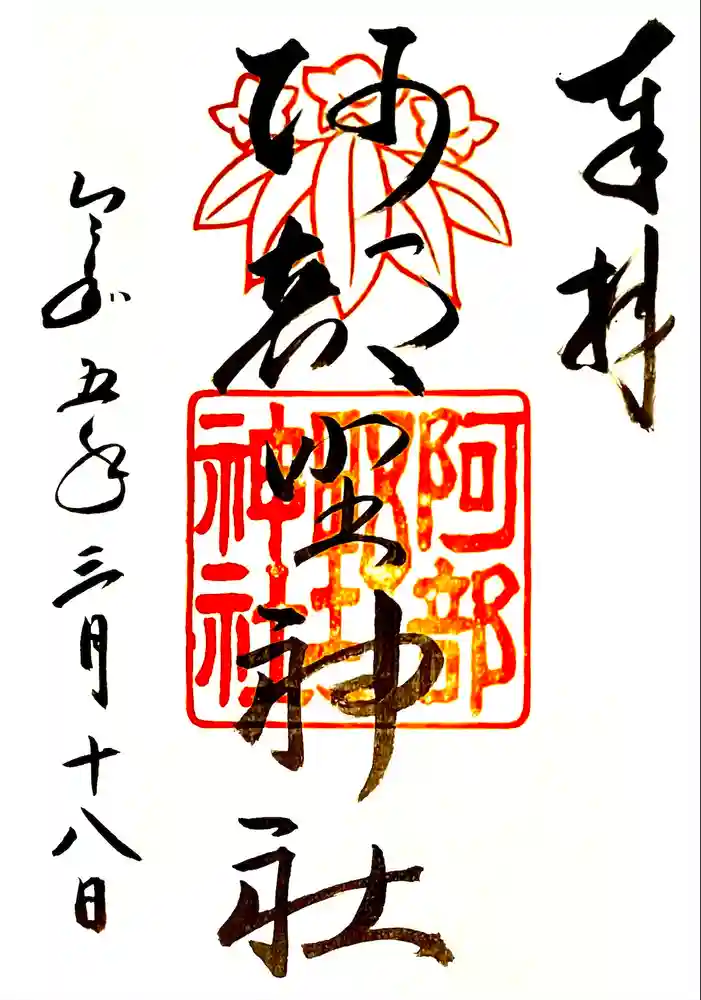 奉拝
阿部野神社
阿部野神社
令和五年三月十八日